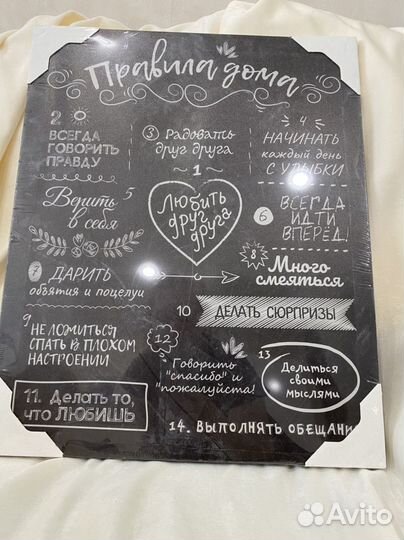 Правила дома
2
ВСЕГДА
ГОВОРИТЬ
ПРАВДУ
3 Радовать
друг друга
4
НАЧИНАТЬ
каждый день
С УЛЫБКИ
1
ЛЮБИТЬ
друг
друга
Верить 5
в себя
6 ВСЕГДА
ИДТИ
ВПЕРЁД!
7 ДАРИТЬ
объятия и поцелуи
8
Много
смеяться
9
НЕ ЛОЖИТЬСЯ
СПАТЬ В ПЛОХОМ
НАСТРОЕНИИ
10 ДЕЛАТЬ СЮРПРИЗЫ
11. Делать то,
что ЛЮБИШЬ
12
Говорить
"спасибо" и
"пожалуйста!
13
Делиться
своими
мыслями
14. ВЫПОЛНЯТЬ ОБЕЩАНИ
Avito